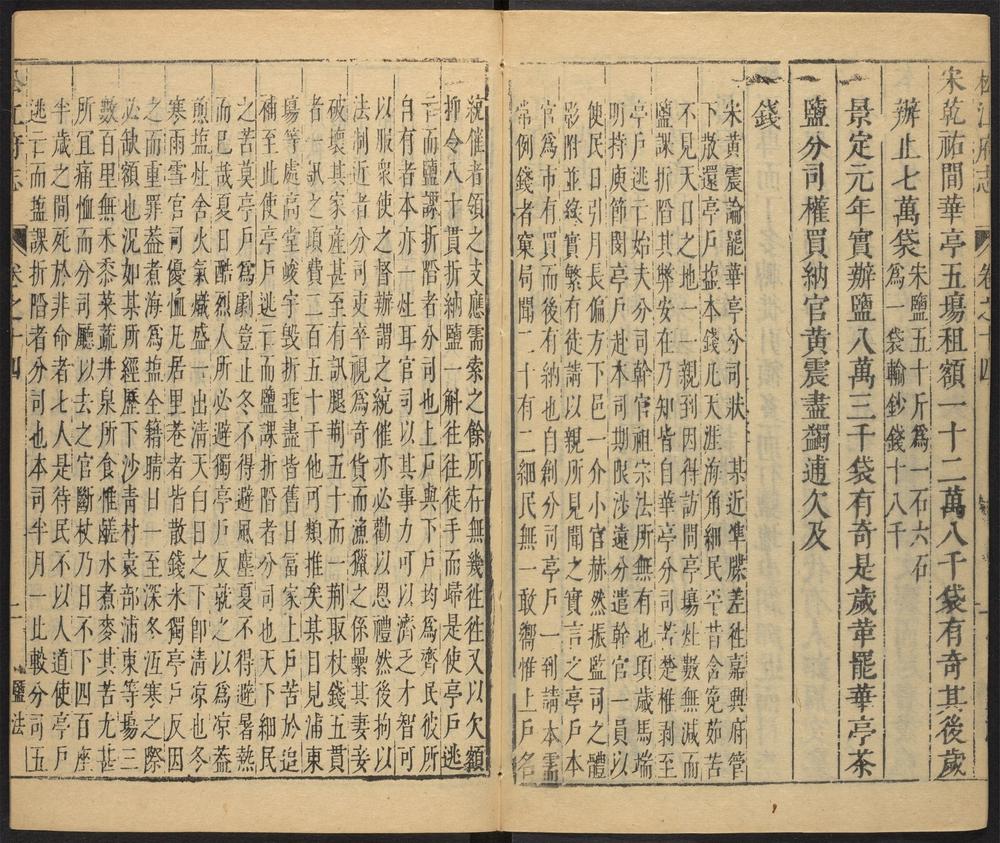 松江府志 卷之十四
宋乾祐間華亭五塲租額一十二萬八千袋有奇其後歲
辦止七萬袋宋鹽五十斤爲一石六石
爲一袋輸鈔錢十八千
景定元年實辦鹽八萬三千袋有奇是歲革罷華亭茶
鹽分司權買納官黃震盡蠲逋欠及
錢
宋黃震論罷華亭分司狀 某近準牒差徃嘉興府管
下散還亭戶塩本錢凡天涯海角細民平昔含寃茹苦
不見天日之地一一親到因得訪問亭塲灶數無減而
鹽課折陷其弊安在乃知皆自華亭分司苦楚椎剥至
亭戶逃亡始夫分司幹官祖宗法所無有也項歲馬瑞
明持庾節閔亭戶赴本司期限涉遠分遣幹官一員以
便民日引月長偏方下邑一介小官赫然振監司之體
影附並緣實繁有徒請以親所見聞之實言之亭戶本
官爲市有買有納也自創分司亭戶一到請本需
常例錢者窠局聞二十有二細民無一敢嚮惟上戶名
統催者領之支應需索之餘所存無幾徃徃又以欠額
抑令八十貫折納鹽一斛徃徃徒手而歸是使亭戶逃
亡而鹽課折陷者分司也上戶與下戶均爲齊民彼所
自有者本亦一灶耳官司以其事力可以濟乏才智可
以服衆使之督辦謂之統催亦必勸以恩禮然後拘以
法制近者分司吏卒視爲奇貨而漁獵之係纍其妻妾
破壞其家産甚至有訊腿荆五十而一荆取杖錢五貫
者一訊之頃費二百五十千他可類推矣其日見浦東
塲等處高堂峻宇毁折垂盡皆舊日富家上戶苦於追
補至此使亭戶逃亡而鹽課折陷者分司也天下細民
之苦莫亭戶爲劇豈止冬不得避風塵夏不得避暑熱
而已哉夏日酷烈人所必避獨亭戶反就之以爲凉葢
煎塩灶舍火氣熾盛一出清天白日之下卽清凉也冬
寒雨雪官司優恤凡居里巷者皆散錢米獨亭戶反因
之而重罪葢煮海爲塩全籍晴日一至深冬沍寒之際
必缺額也况如某所經歷下沙青村袁部浦東等塲三
數百里無禾黍菜蔬井泉所食惟鹹水煮麥其苦尤甚
所宜痛恤而分司廳以去之官斷杖乃日不下四百座
半歲之間死於非命者七人是待民不以人道使亭戶
逃亡而塩課折陷者分司也本司半月一比較分司五
松江府志 卷之十四 二 鹽法